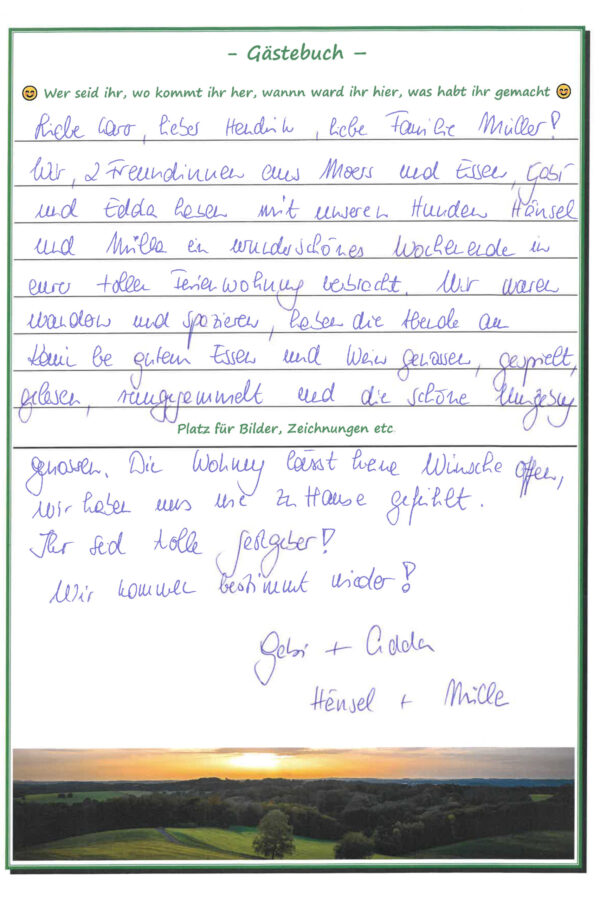 - Gästebuch –
Wer seid ihr, wo kommt ihr her, wannn ward ihr hier, was habt ihr gemacht
Liebe Caro, lieber Hendrik, liebe Familie Müller!
Wir, 2 Freundinnen aus Moers und Essen, Gabi
und Edda haben mit unseren Hunden Hänsel
und Mülla ein wunderschönes Wochenende in
eurer tollen Ferienwohnung verbracht. Wir waren
wandern und spazieren, haben die Abende am
Kamin be gutem Essen und Wein genossen, gespielt,
gelesen, rumgegammelt und die schöne Umgebung
Platz für Bilder, Zeichnungen etc.
genossen. Die Wohnung lässt keine Wünsche offen,
wir haben uns wie zu Hause gefühlt.
Ihr seid tolle Gastgeber!
Wir kommen bestimmt wieder!
Gabi + Edda
Hänsel + Mülla